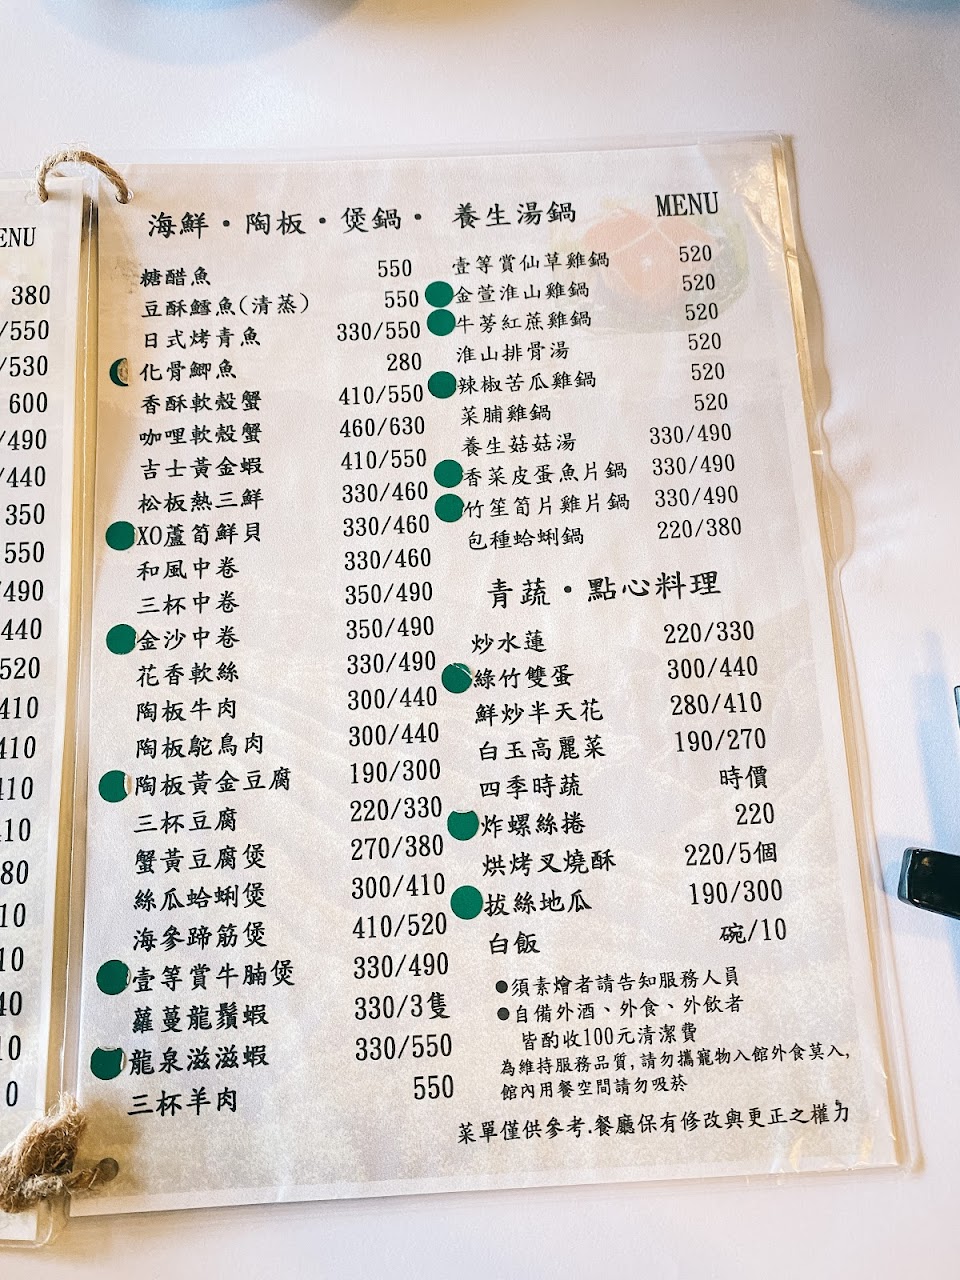 ENU
380
/550
/530
600
/490
/440
350
550
/490
440
520
410
410
410
10
80
10
10
40
10
0
MENU
海鮮・陶板・煲鍋・
糖醋魚 550
豆酥鱈魚(清蒸) 550
日式烤青魚 330/550
化骨鯽魚 280
香酥軟殼蟹 410/550
咖哩軟殼蟹 460/630
吉士黃金蝦 410/550
松板熱三鮮 330/460
XO蘆筍鮮貝 330/460
和風中卷 330/460
三杯中卷 350/490
金沙中卷 350/490
花香軟絲 330/490
陶板牛肉 300/440
陶板鴕鳥肉 300/440
陶板黃金豆腐 190/300
三杯豆腐 220/330
蟹黃豆腐煲 270/380
絲瓜蛤蜊煲 300/410
海參蹄筋煲 410/520
壹等賞牛腩煲 330/490
蘿蔓龍鬚蝦 330/3隻
龍泉滋滋蝦 330/550
三杯羊肉 550
養生湯鍋
壹等賞仙草雞鍋 520
金萱淮山雞鍋 520
牛蒡紅蔗雞鍋 520
淮山排骨湯 520
辣椒苦瓜雞鍋 520
菜脯雞鍋 520
養生菇菇湯 330/490
香菜皮蛋魚片鍋 330/490
竹笙筍片雞片鍋 330/490
包種蛤蜊鍋 220/380
青蔬・點心料理
炒水蓮 220/330
綠竹雙蛋 300/440
鮮炒半天花 280/410
白玉高麗菜 190/270
四季時蔬 時價
炸螺絲捲 220
烘烤叉燒酥 220/5個
拔絲地瓜 190/300
白飯 碗/10
●須素燴者請告知服務人員
●自備外酒、外食、外飲者
皆酌收100元清潔費
為維持服務品質,請勿攜寵物入館外食莫入,
館內用餐空間請勿吸菸
菜單僅供參考.餐廳保有修改與更正之權力